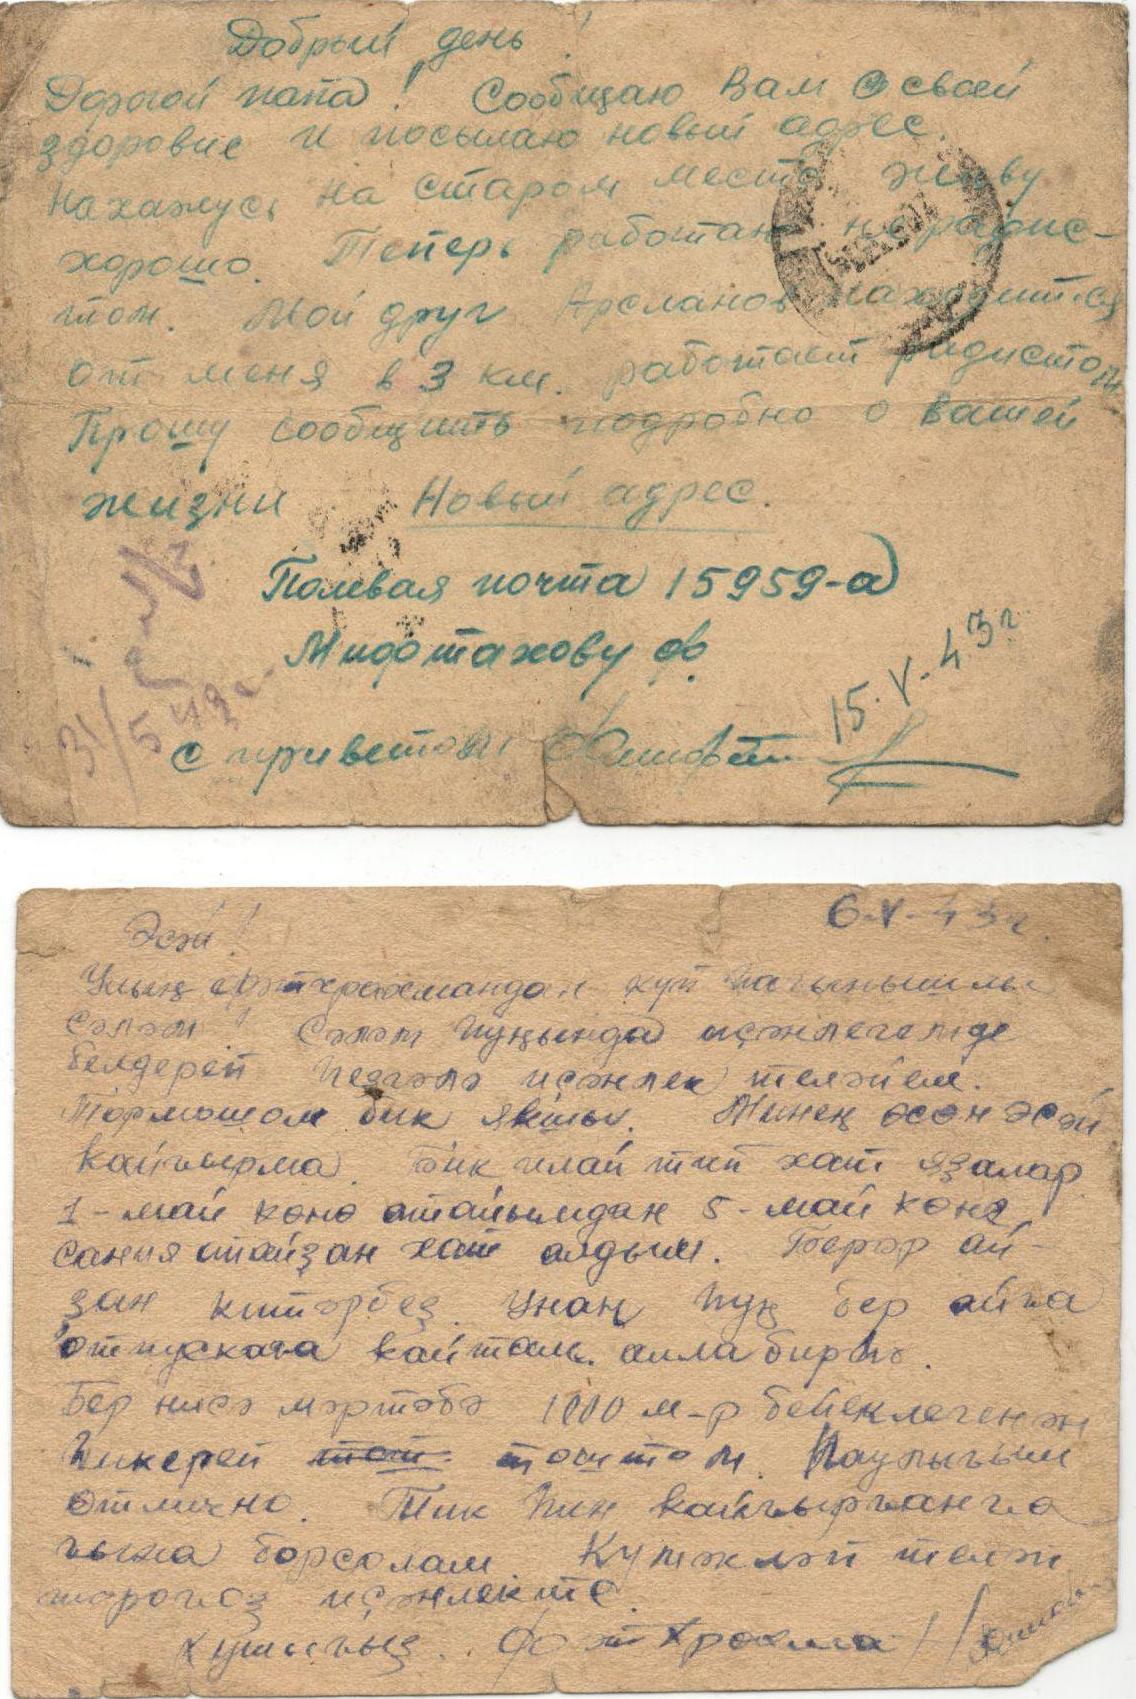 Добрый день!
Дорогой папа! Сообщаю Вам о своей
здоровие и посылаю новый адрес.
Нахажусь на старом месте. живу
хорошо. Теперь работаю не радис-
том. Мой друг Арсланов находится
от меня в 3 км. работает радистом
Прошу сообщить подробно о вашей
жизни Новый адрес.
Полевая почта 15959-а
Мифтахову ф.
15.V.43г
31/5 43г
с приветом
6-V-43г.
Эсәй!
Улың фәтхрахмандан күп һағынышлы
сәләм! Сәләм һуңында исәнлегемде
белдереп һезгә лә исәнлек теләйем.
Тормошом бик яҡшы. Минең өсөн әсәй
кайғырма. Бик илай тип хат яҙалар
1-май көнө апайымдан 5-май көнө
сания апайҙан хат алдым. Берәр ай-
ҙан китәрбеҙ. Унан һуң бер айға
отпускаға кайтам. алла бирһә.
Бер нисә мәртәбә 1000 м-р бейеклегенән
һикереп төштөм. һаулығым
отлично. Тик һин кайғырғанға
ғына борсолам Күмәкләп теләп
тороғоҙ исәнлекте.
хушығыҙ. Фәтхрахман